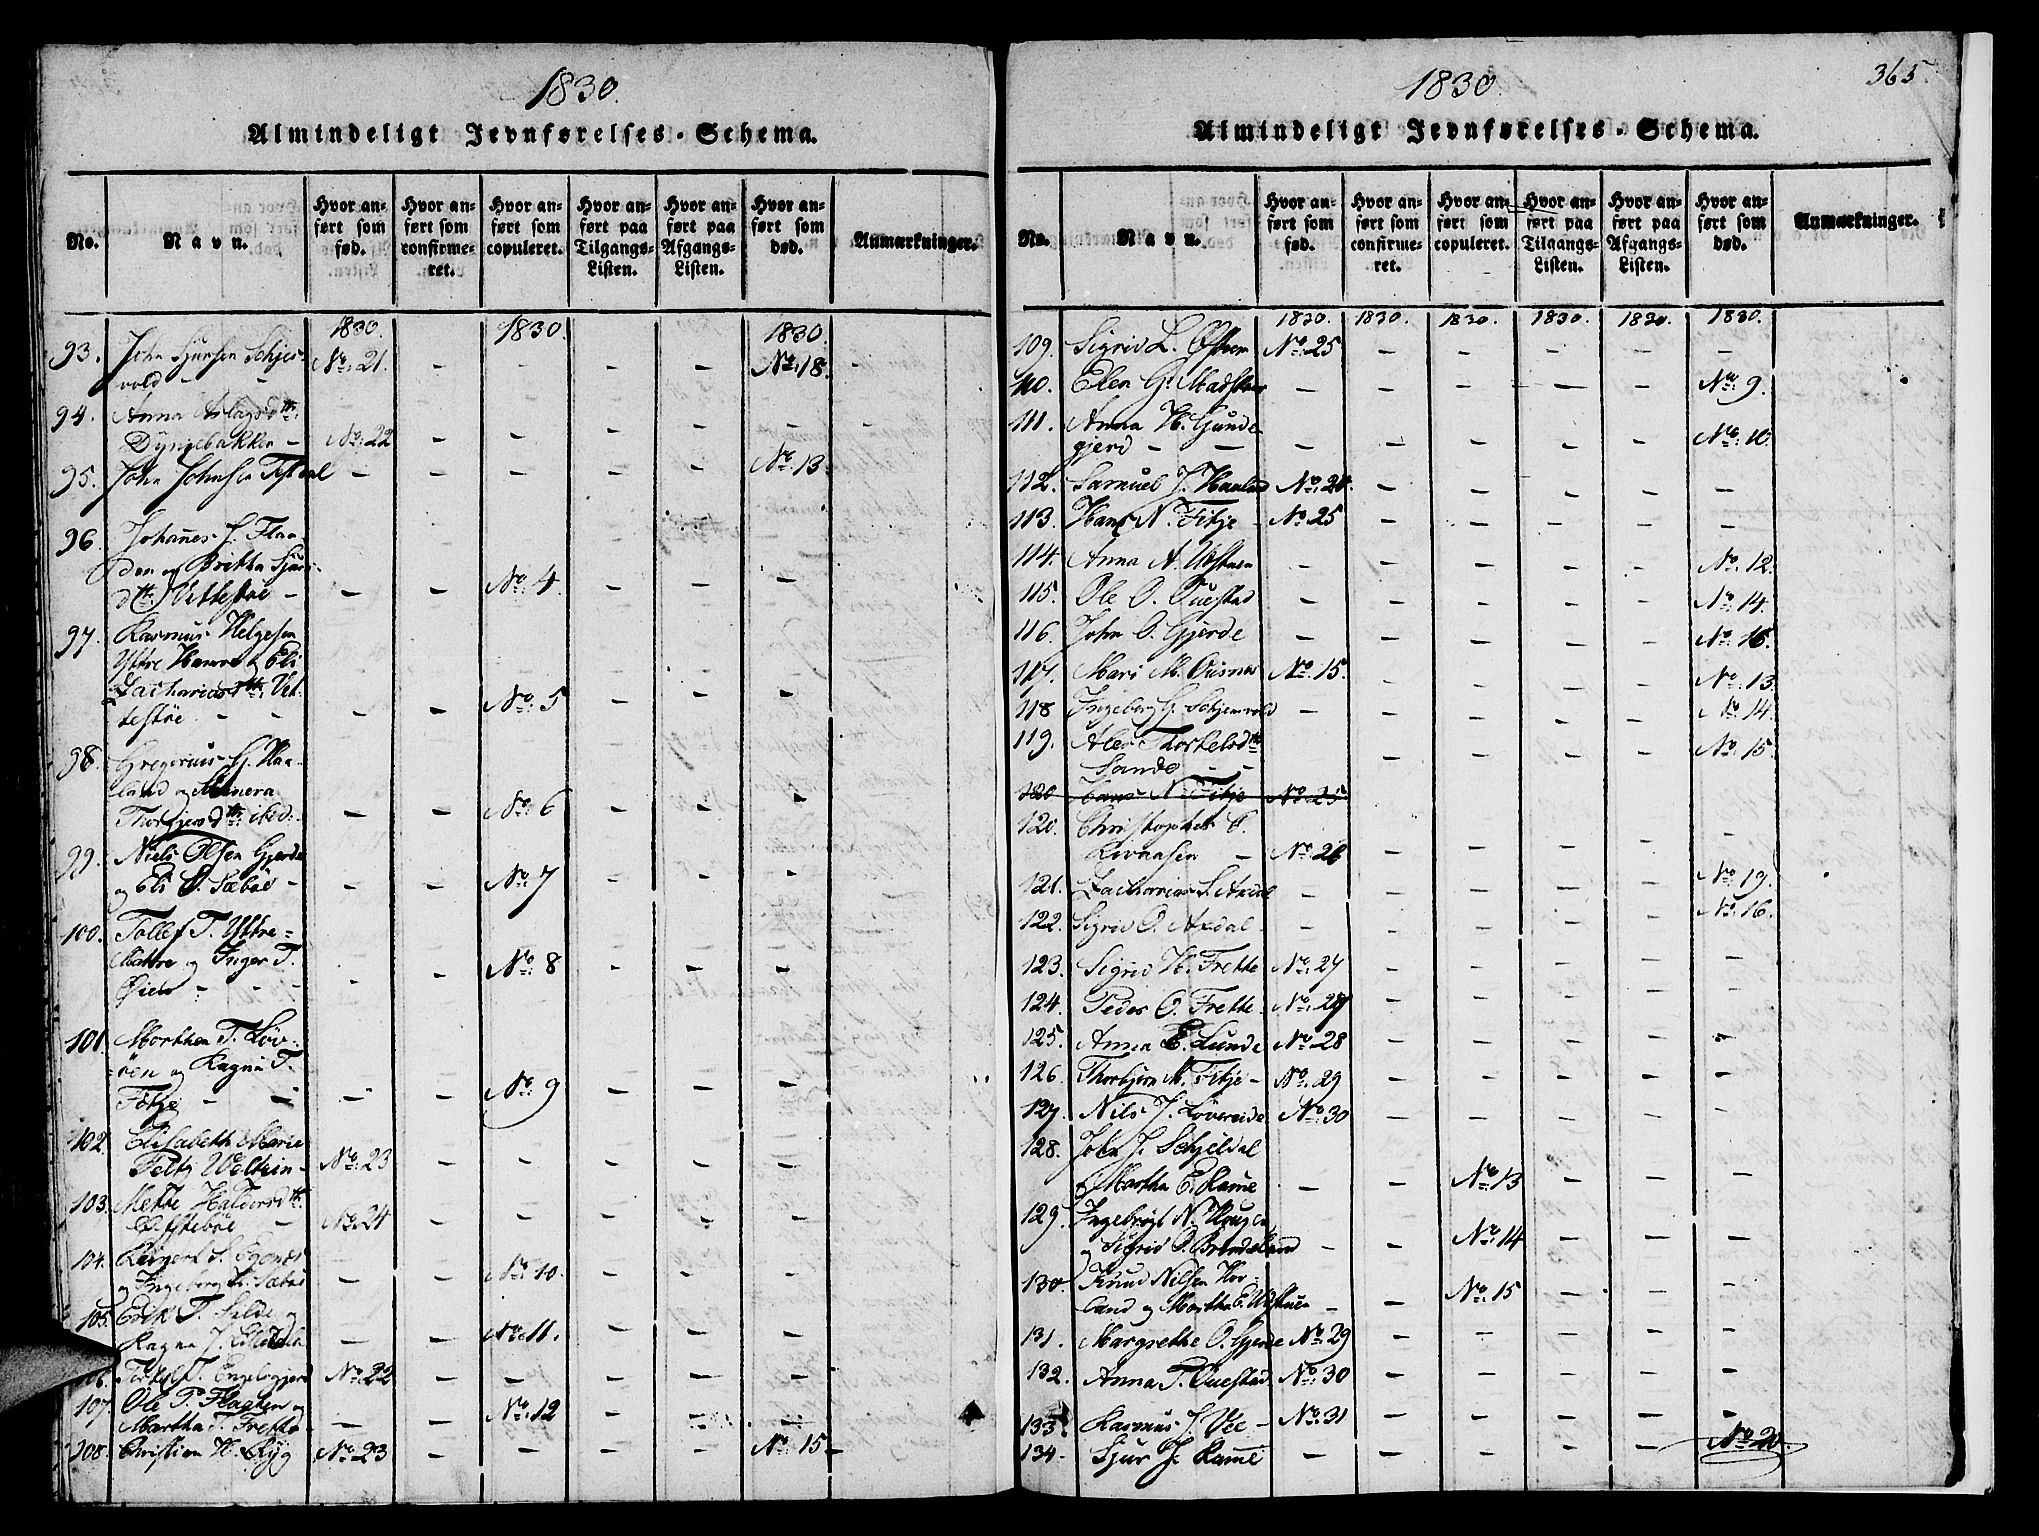 1830.
Almindeligt Jevnførelses-Schema.
No.
Navn.
Hvor anført som fød.
Hvor anført som confirmeret.
Hvor anført som copuleret.
Hvor anført paa Tilgangs-Listen.
Hvor anført paa Afgangs-Listen.
Hvor anført som død.
Anmærkninger.
1830. 1830. 1830.
93. John Sjursen Schjer-
vold - - No: 21. - - - - No: 18. -
94. Anna Aslagsdtr:
Dyngebakken - No: 22 - - - - -
95. John Johnsen - - - - - No: 13.
96. Johannes J. Flaa-
den og Britha Sjurs-
dtr: Vettestøe - - - No: 4. - - -
97. Rasmus Helgesen
Yttre Hamre & Eli
Zachariasdtr: Vet-
testøe. - - - - No: 5 - - -
98. Gregorius G. Haa-
land og
Thorgersdtr: ibid: - - No: 6 - - -
99. Niels Olsen Gjerde
og Eli O. Sæbøe - - - No: 7 - - -
100. Tollef T. Yttre-
Mattre og Inger T.
Øien - - - - - No: 8 - - -
101. Morthen T. Løv-
øen og Ragna T.
Fitje - - - - No: 9 - - -
102. Elisabeth Marie
No: 23 - - - - -
103. Mette Haldorsdtr:
- No: 24 - - - - -
104.
og Ingeborg Sæbøe - - No: 10. - - -
105. Erik T. og
Ragna J. - - No: 11. - - -
106. Torkel T. Engelsgjerd No: 22 - - - - -
107. Ole P. Flaaten og
Martha T. Frette - - No: 12 - - -
108. Christian H. Ryg No: 23 - - - - No: 15 -
1830.
365.
Almindeligt Jevnførelses-Schema.
No.
Navn.
Hvor anført som fød.
Hvor anført som confirmeret.
Hvor anført som copuleret.
Hvor anført paa Tilgangs-Listen.
Hvor anført paa Afgangs-Listen.
Hvor anført som død.
Anmærkninger.
1830. 1830. 1830. 1830. 1830. 1830.
109. Sigrid L. Østrem No: 25 - - - - -
110. Elen G. - - - - - No: 9.
111. Anna H. Gunde-
gjerd - - - - - - - No: 10.
112. Samuel J. Haaland No: 24. - - - - -
113. Hans N. Fitje - No: 25 - - - - -
114. Anna A. - - - - - No: 12.
115. Ole O. Questad - - - - - No: 14.
116. John O. Gjerde - - - - - No: 16.
117. Mari M. Ousnes No: 15. - - - - No: 13
118 Ingeborg G. Schjervold - - - - - No: 14.
119. Torkelsdtr
Sande - - - - - - No: 15.
120 Hans N. Fitje No: 25
120. Christopher C.
- No: 26 - - - - -
121. Zacharias S. Axdal - - - - - No: 19.
122. Sigrid O. Axdal - - - - - No: 16.
123. Sigrid H. Frette No: 27 - - - - -
124. Peder O. Frette No: 27 - - - - -
125. Anna E. Lunde No: 28 - - - - -
126. Thorbjørn N. Fitje - No: 29 - - - - -
127. Nils J. Løvereide No: 30 - - - - -
128. John J. Schjeldal
& Martha E. Rame - - No: 13 - - -
129. Ingebrigt N. Hougen
og Sigrid O. - - No: 14 - - -
130. Knud Nilsen Hov-
land og Martha E. - - No: 15 - - -
131. Margrethe O. Gjerde No: 29 - - - - -
132. Anna T. Questad No: 30 - - - - -
133. Rasmus J. Vee - No: 31 - - - - -
134. Sjur J. Rame - - - - - No: 20.